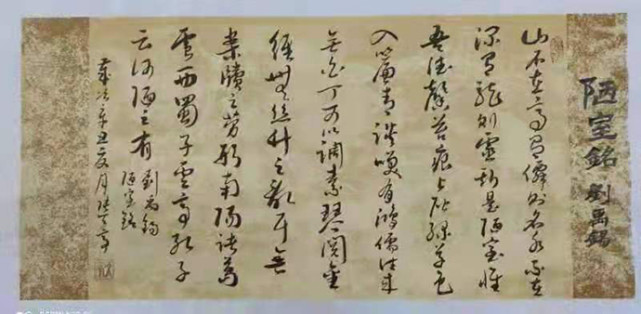 陋室銘 劉禹錫
山不在高有僊則名水不在
深有龍則靈斯是陋室惟
吾德馨苔痕上階綠草色
入簾青談笑有鴻儒往來
無白丁可以調素琴閱金
經無絲竹之亂耳無
案牘之勞形南陽諸葛
廬西蜀子雲亭孔子
云何陋之有
劉禹錫
陋室銘
歲次辛丑夏月